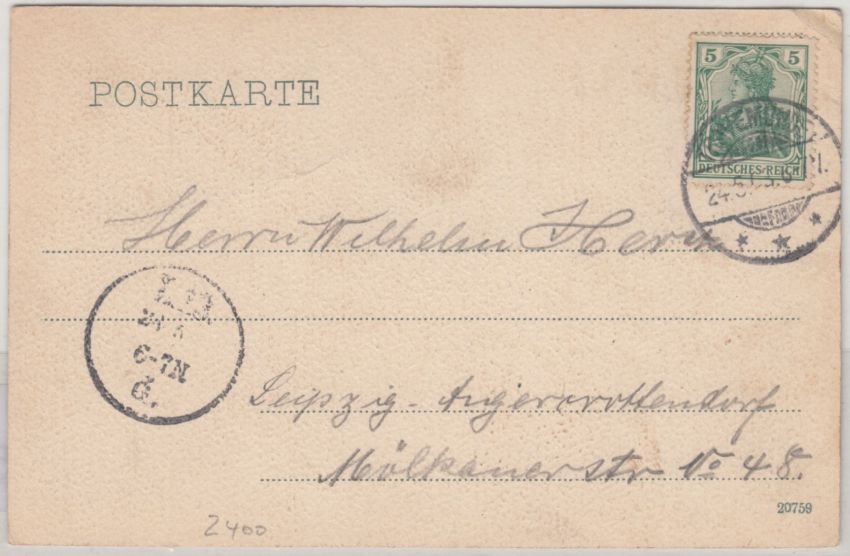 POSTKARTE
5 5
DEUTSCHES REICH
CHEMNITZ
24.5.
Herrn Wilhelm
6-7N
Leipzig - Angercrottendorf
Mölkauerstr No 48.
20759
2400